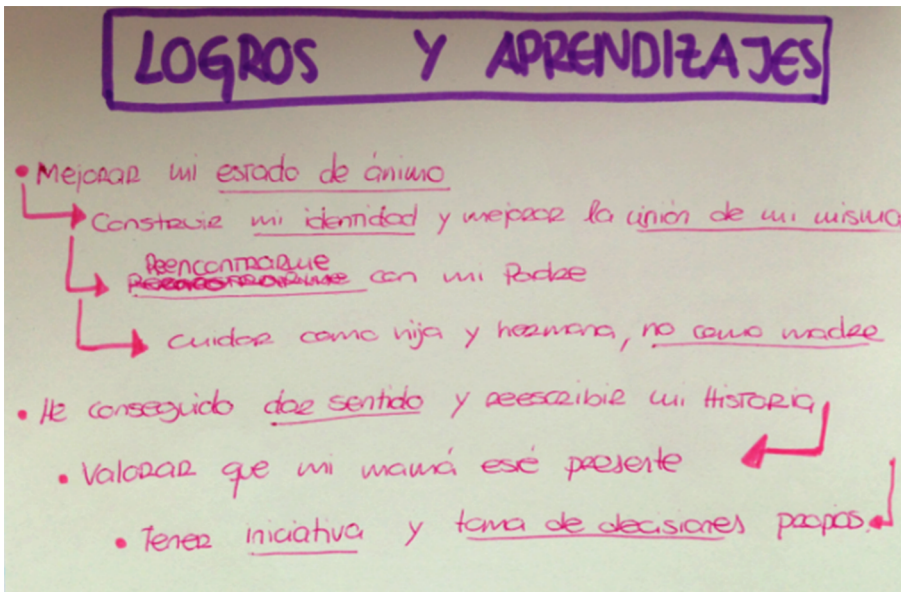 LOGROS Y APRENDIZAJES
• Mejorar mi estado de ánimo
Construir mi identidad y mejorar la unión de mi misma
Reencontrarme
con mi Padre
cuidar como hija y hermana, no como madre
• He conseguido dar sentido y reescribir mi HISTORIA
• Valorar que mi mamá esté presente
• Tener iniciativa y toma de decisiones propias.